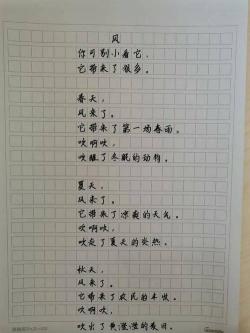 风
你可别小看它，
它带来了很多。
春天，
风来了。
它带来了第一场春雨。
吹啊吹，
吹醒了冬眠的动物。
夏天，
风来了。
它带来了凉爽的天气。
吹啊吹，
吹走了夏天的炎热。
秋天，
风来了。
它带来了农民的丰收。
吹啊吹，
吹出了黄澄澄的麦田。